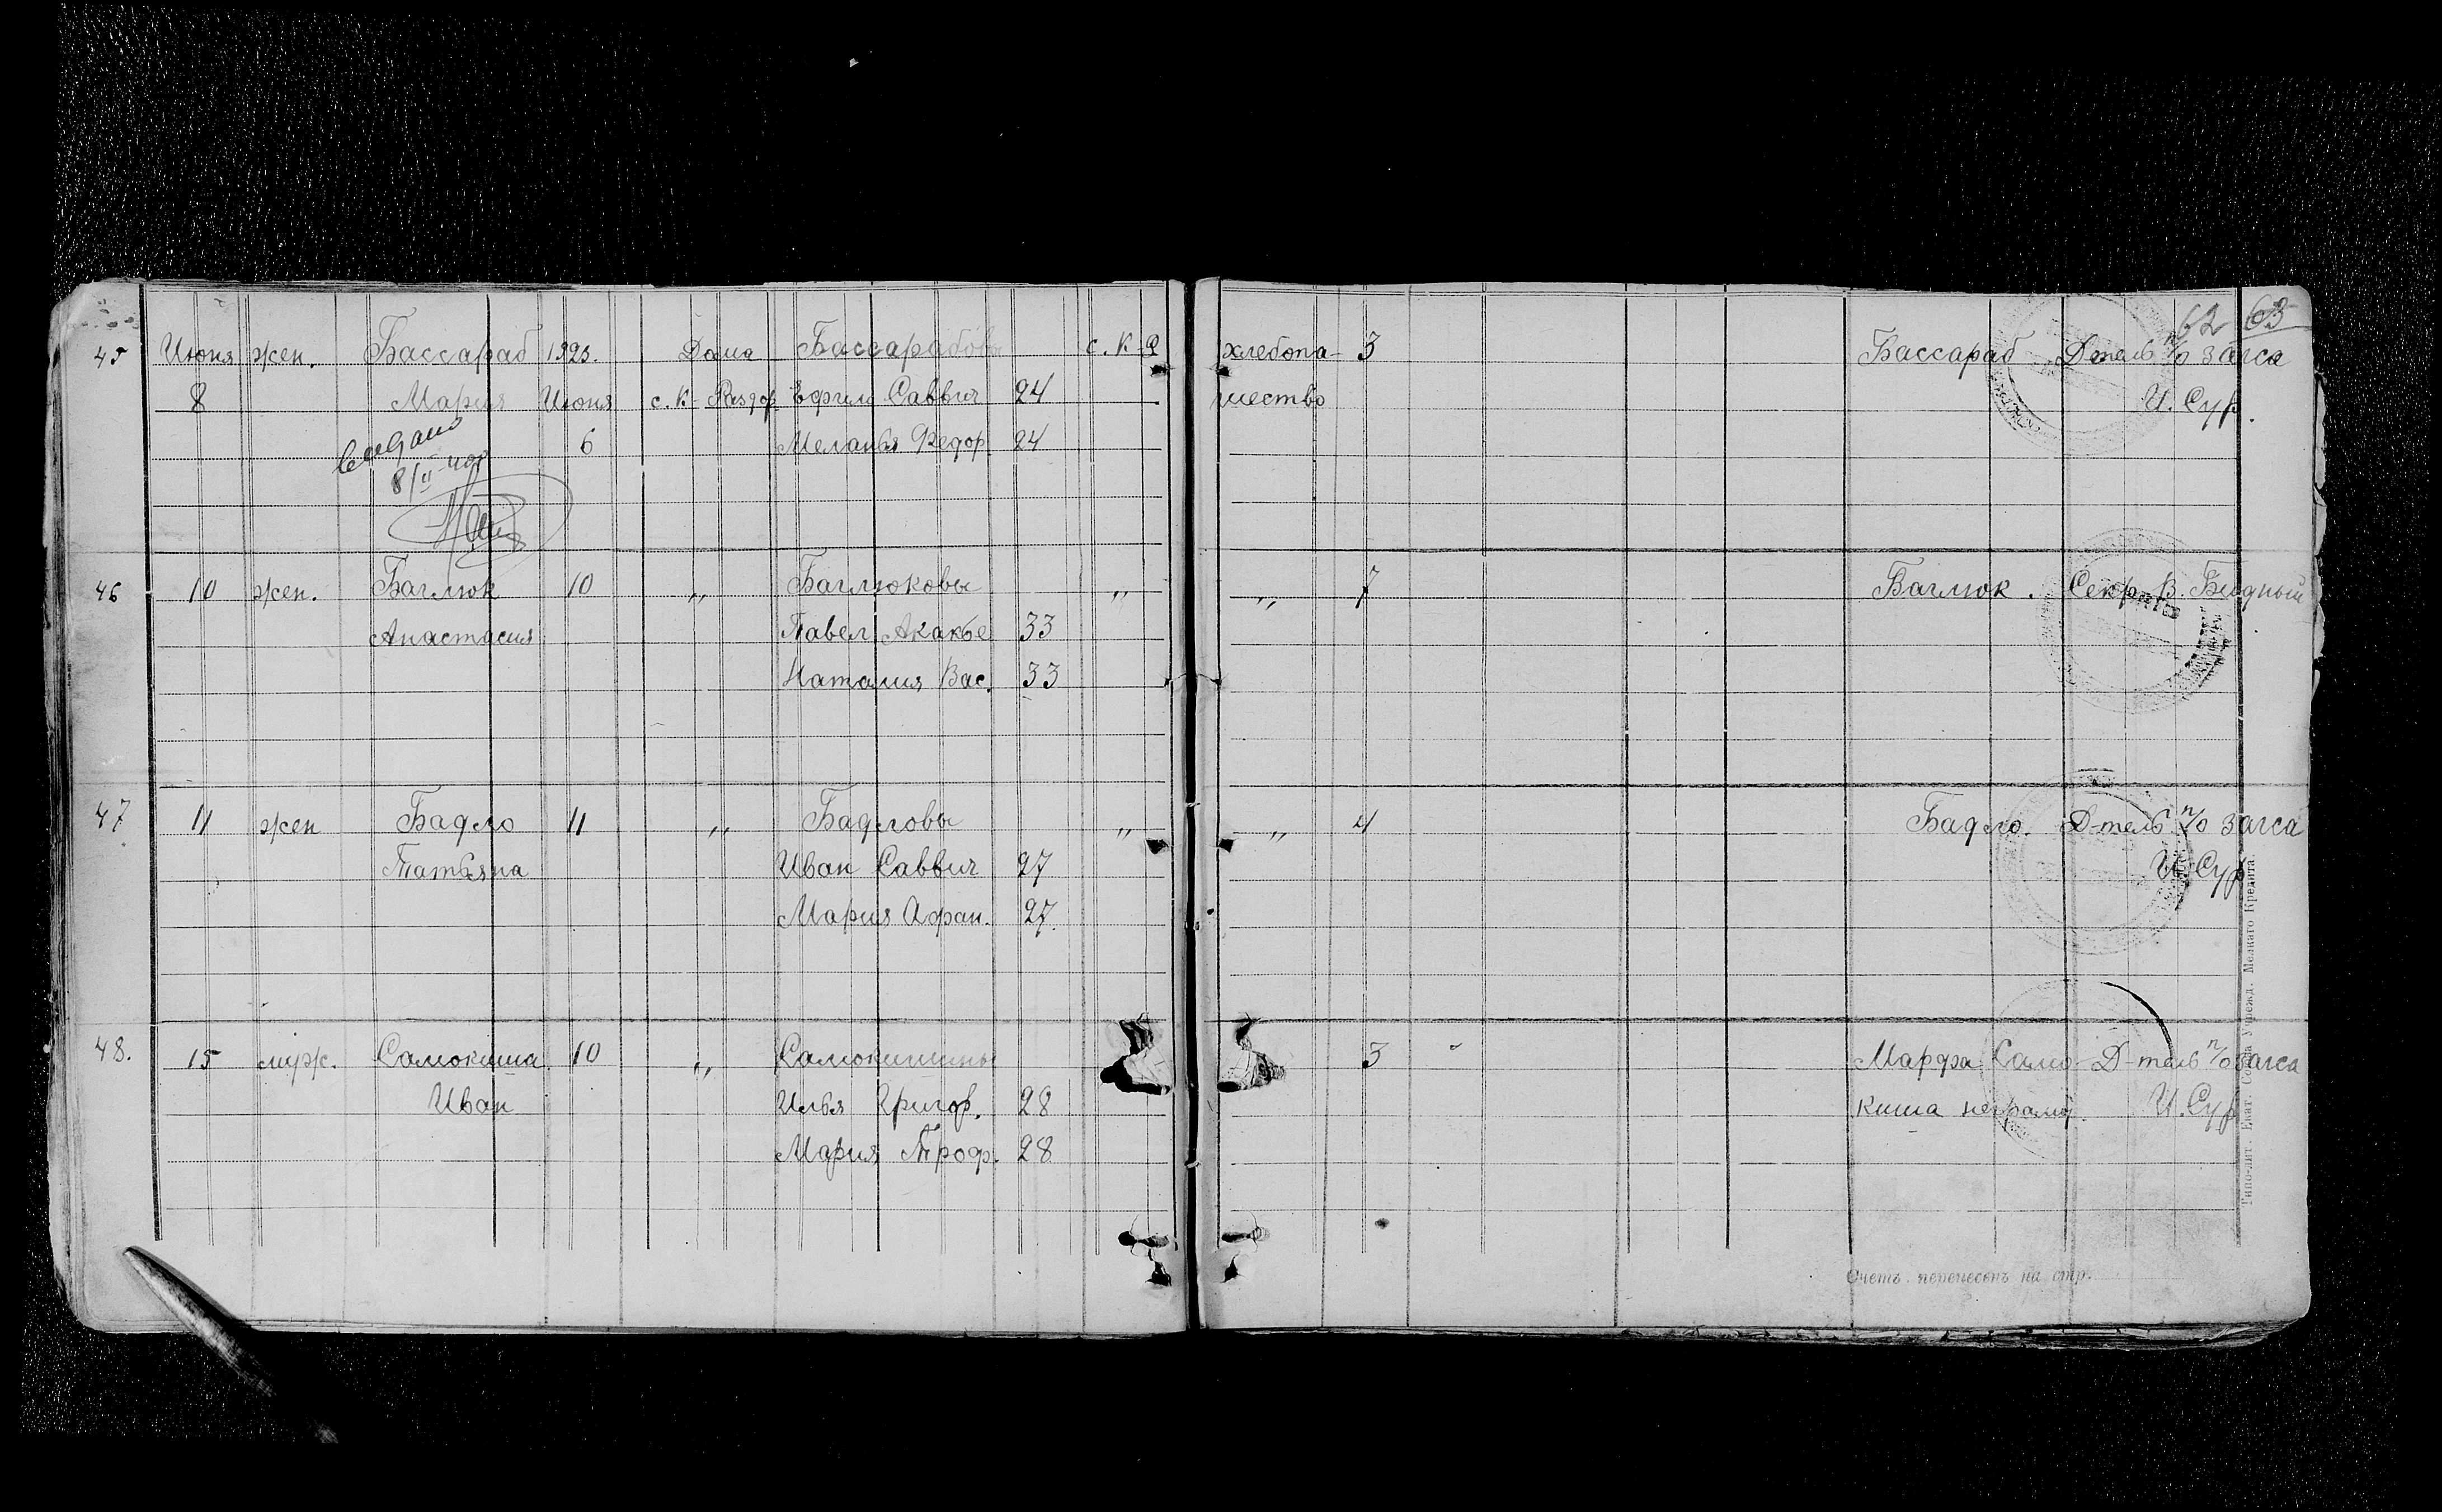 62 63
45 Июня жен. Бассараб 1923. Дома Бассарабовы с. К-Р хлебопа- 3 Бассараб Д-тель п/о загса
8 Мария Июня с. К-Раздор. Ефим Саввич 24 шество И. Сур.
6 Меланья Федор. 24
8/II-
46 10 жен. Баглюк 10 „ Баглюковы „ „ 7 Баглюк. Секр. В. Бидный
Анастасия Павел Акакье 33
Наталия Вас. 33
47 11 жен Бадло 11 „ Бадловы „ „ 4 Бадло. Д-тель п/о загса
Татьяна Иван Саввич 27 И. Сур
Мария Афан. 27.
48. 15 муж. Самокиша 10 „ Самокишины 3 Марфа Само- Д-тель п/о загса
Иван Илья Григор. 28 киша неграмот. И. Сур
Мария Троф. 28
Счетъ перенесенъ на стр.
Типо-лит. Екат. Союза Учрежд. Мелкаго Кредита.